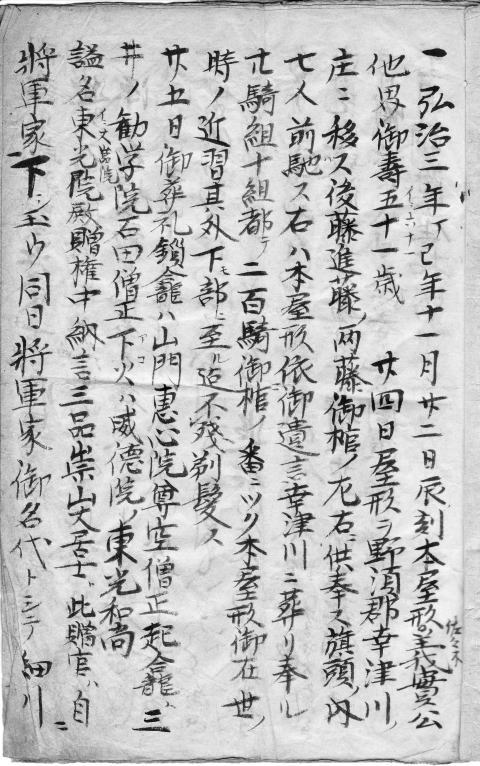 一弘治三年丁巳年十一月廿二日辰刻本屋形義實公佐々木
他界御壽五十一歳イ六十一 廿四日屋形ヲ野須郡幸津川ノ
庄ニ移ス後藤進藤ノ両藤御棺ノ左右ニ供奉ス旗頭ノ内
七人前馳ス右ハ本屋形依御遺言幸津川ニ葬リ奉ル
廿騎組十組都テ二百騎御棺ノ番ニツク本屋形御在世ノ
時ノ近習其外下部ニ至ル迠不残剃髪ス
廿五日御葬礼鎖龕ハ山門恵心院尊空僧正起龕ハ三
井ノ勧学院石田僧正下火ハ威徳院ノ東光和尚
謚名東光院殿贈権中納言三品崇山大居士此贈官ハ自
將軍家下シ玉ウ同日將軍家御名代トシテ細川